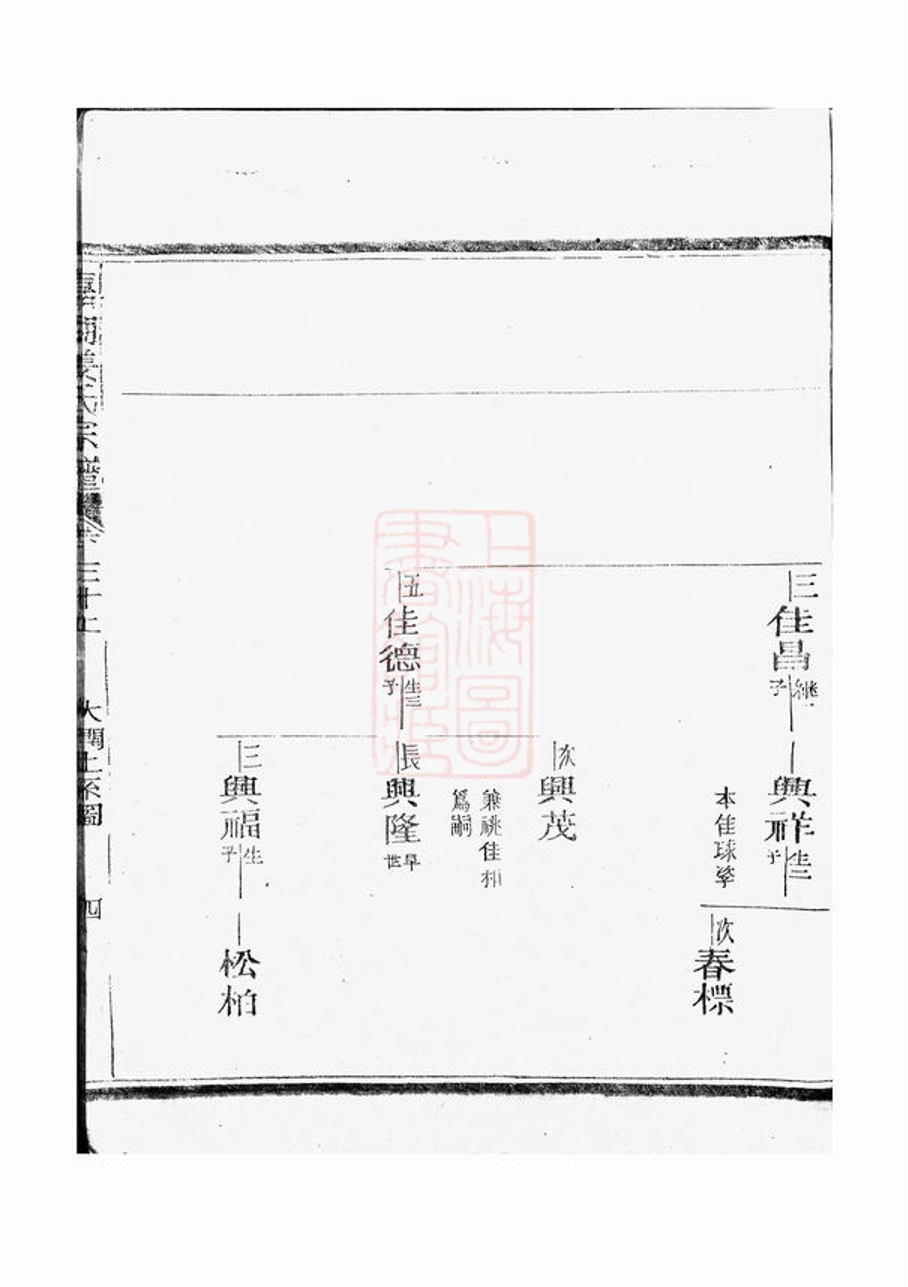 三
佳昌
繼一子
興祥
生二子
本佳球孳
次
春標
次
興茂
兼祧佳和
爲嗣
五
佳德
生三子
長
興隆
早世
三
興福
生一子
松柏
姜氏宗譜
大闊上系圖
四
上海圖書館藏